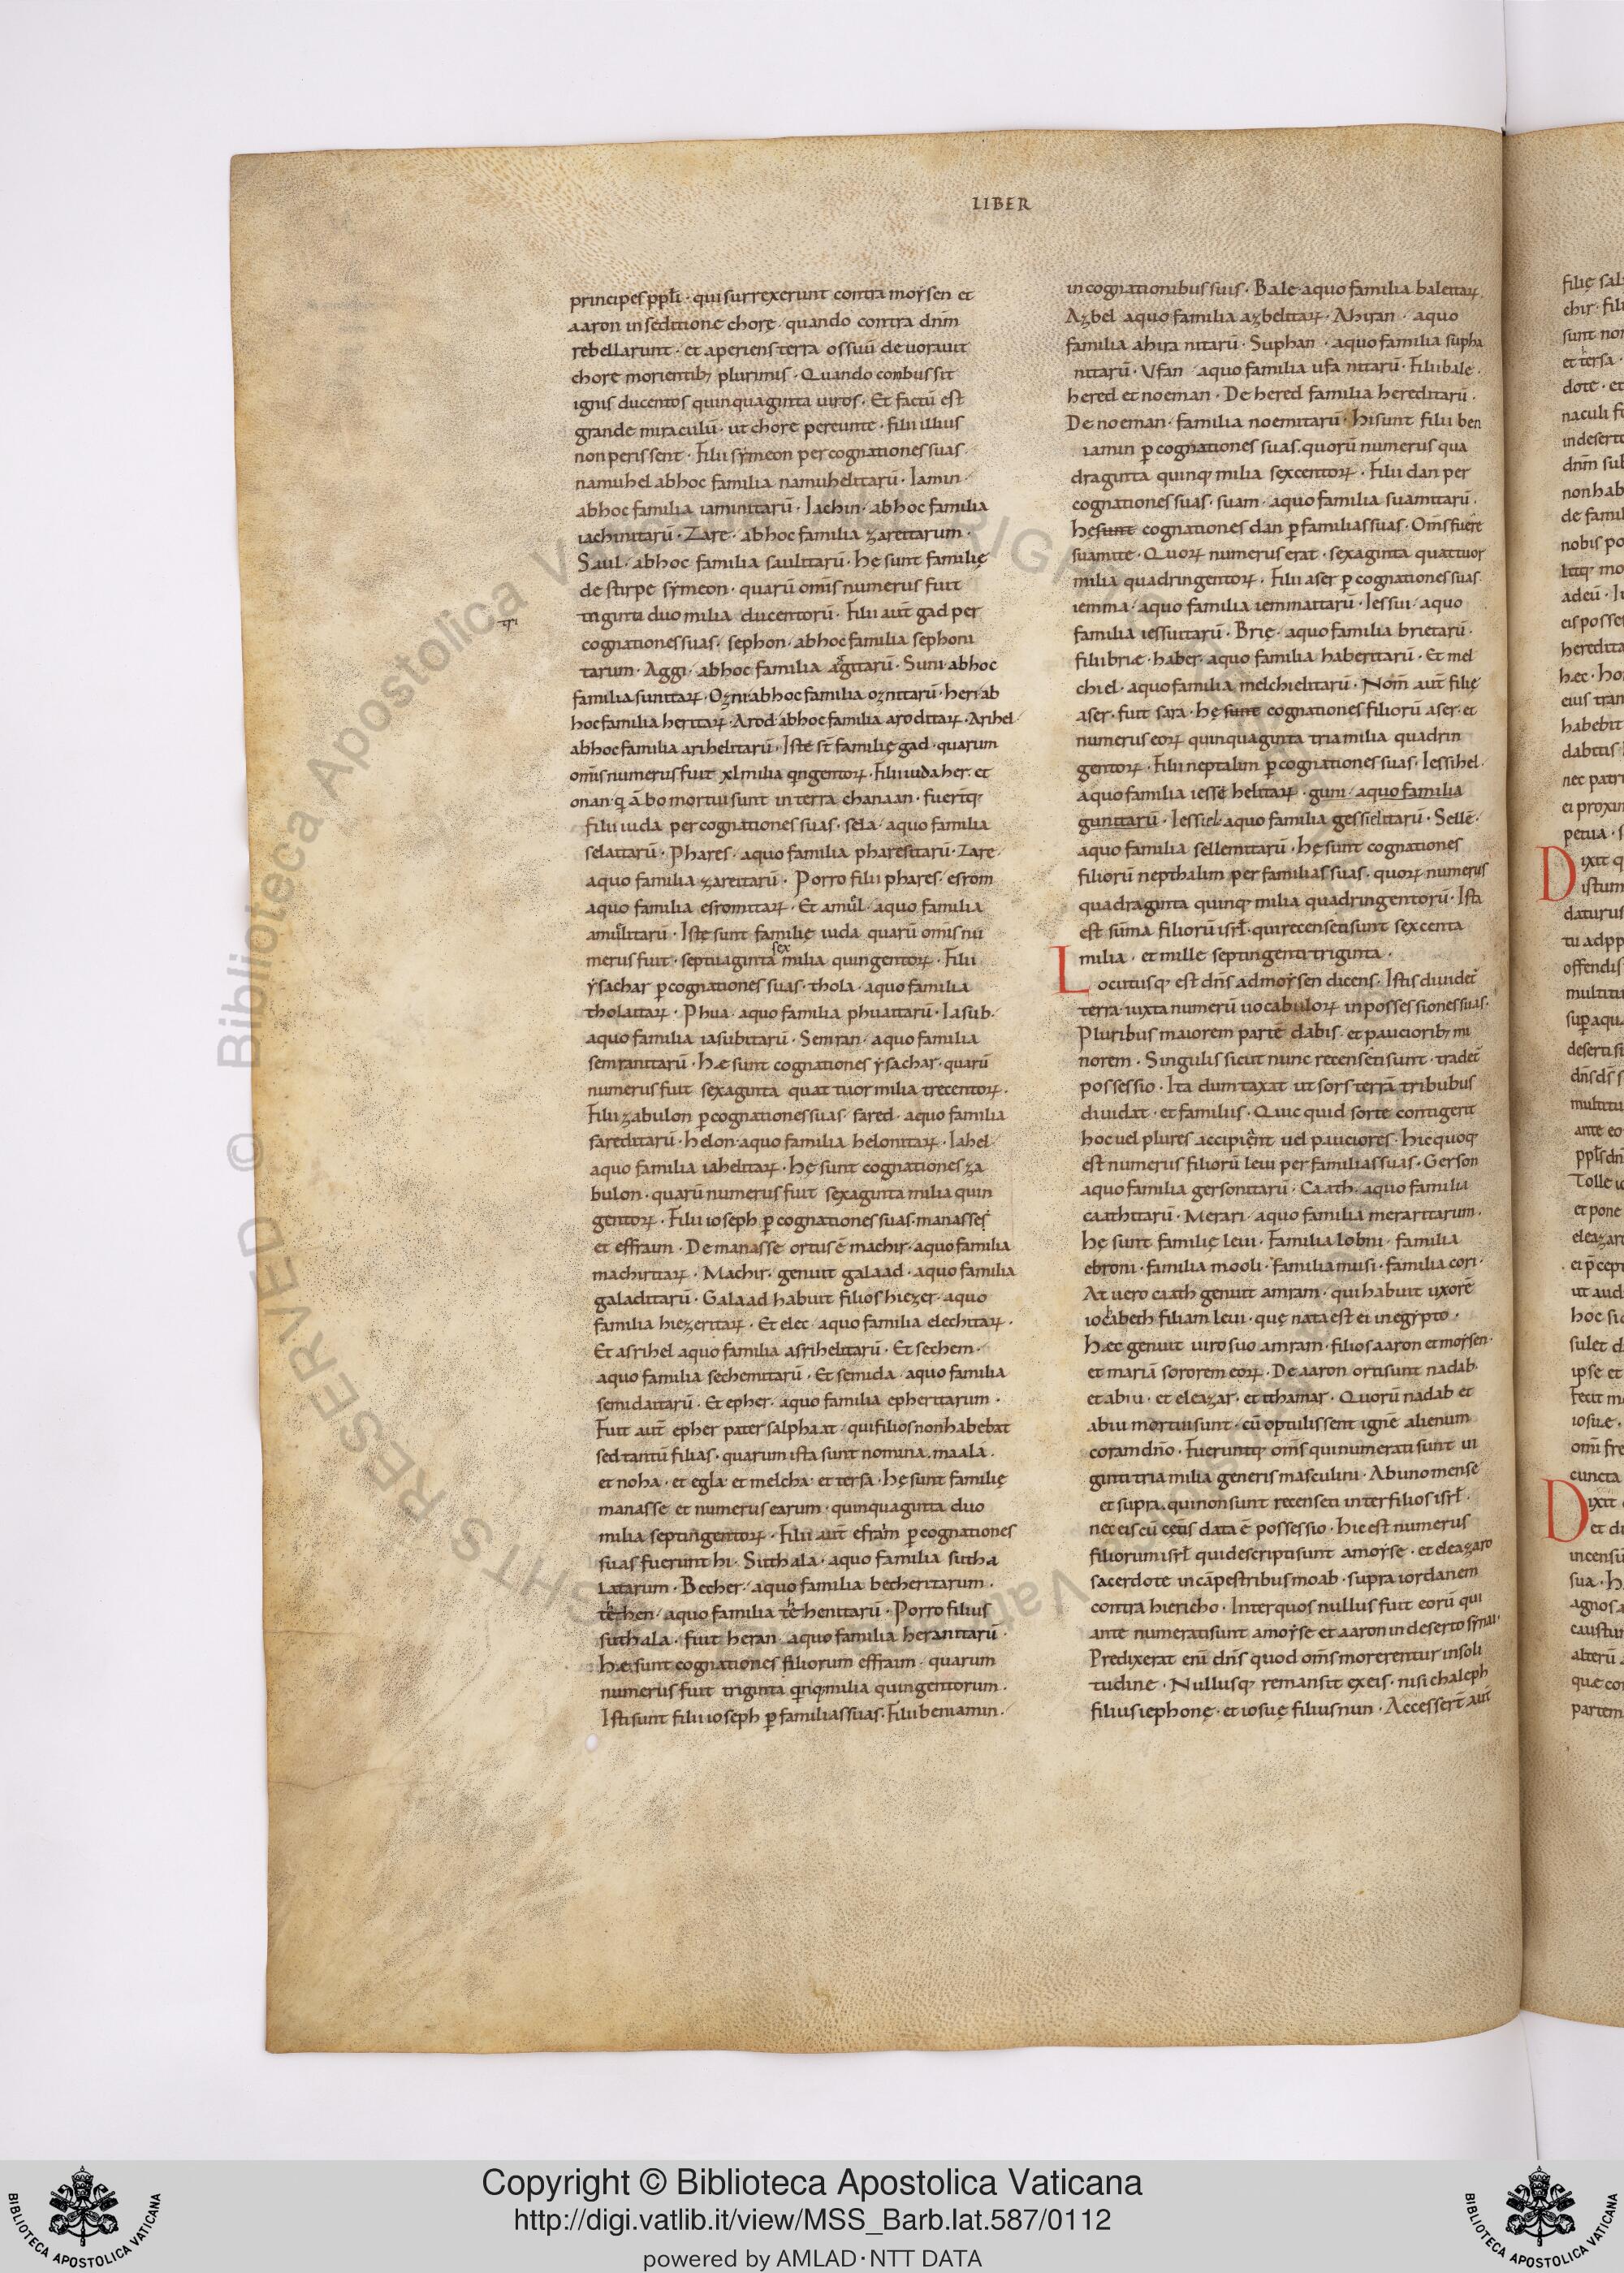 LIBER
principes pp̄li · qui surrexerunt contra moẏsen et
aaron in seditione chorę · quando contra dnm̄
rebellarunt · et aperiens terra os suū deuorauit
chore morientib; plurimis · Quando conbussit
ignis ducentos quinquaginta uiros · Et factū est
grande miraculū · ut chore pereunte · filii illius
non perissent · Filii sẏmeon per cognationes suas ·
namuhel ab hoc familia namuhelitarū · Iamin ·
ab hoc familia iaminitarū · Iachin · ab hoc familia
iachinitarū · Zare · ab hoc familia zareitarum ·
Saul · ab hoc familia saulitarū · Hę sunt familię
de stirpe sẏmeon · quarū omīs numerus fuit
uiginti duo milia ducentorū · Filii aut̄ gad per
cognationes suas · sephon · ab hoc familia sephoni
tarum · Aggi · ab hoc familia agitarū · Suni ab hoc
familia sunitaꝝ · Ozni ab hoc familia oznitarū · heri ab
hoc familia heritaꝝ · Arod ab hoc familia aroditaꝝ · Arihel ·
ab hoc familia arihelitarū · Iste st̄ familię gad · quarum
omīs numerus fuit xl milia qngentoꝝ · Filii iuda her · et
onan · q ābo mortui sunt in terra chanaan · fuer̄tq;
filii iuda per cognationes suas · sela · a quo familia
selaitarū · Phares · a quo familia pharesitarū · Zare ·
a quo familia zareitarū · Porro filii phares · esrom
a quo familia esromitaꝝ · Et amul · a quo familia
amulitarū · Istę sunt familię iuda quarū omis nu
merus fuit · septuaginta sex milia quingentoꝝ · Filii
ẏsachar p̱ cognationes suas · thola · a quo familia
tholaitaꝝ · Phua · a quo familia phuaitarū · Iasub ·
a quo familia iasubitarū · Semran · a quo familia
semranitarū · Hæ sunt cognationes ẏsachar · quarū
numerus fuit sexaginta quattuor milia trecentoꝝ ·
Filii zabulon p̱ cognationes suas · sared · a quo familia
sareditarū · helon · a quo familia helonitaꝝ · Iahel ·
a quo familia iahelitaꝝ · Hę sunt cognationes za
bulon · quarū numerus fuit sexaginta milia quin
gentoꝝ · Filii ioseph p̱ cognationes suas · manasses
et effraim · De manasse ortus ē machir · a quo familia
machiritaꝝ · Machir · genuit galaad · a quo familia
galaditarū · Galaad habuit filios hiezer · a quo
familia hiezeritaꝝ · Et elec · a quo familia elechitaꝝ ·
Et asrihel a quo familia asrihelitarū · Et sechem ·
a quo familia sechemitarū · Et semida · a quo familia
semidaitarū · Et epher · a quo familia epheritarum ·
Fuit aut̄ epher pater salphaat · qui filios non habebat
sed tantū filias · quarum ista sunt nomina · maala ·
et noha · et egla · et melcha · et tersa · Hę sunt familię
manasse et numerus earum · quinquaginta duo
milia septingentoꝝ · Filii aut̄ efraim p̱ cognationes
suas fuerunt hi · Suthala · a quo familia sutha
laitarum · Becher · a quo familia becheritarum ·
tehen · a quo familia tehenitarū · Porro filius
suthala · fuit heran · a quo familia heranitarū ·
Hæ sunt cognationes filiorum effraim · quarum
numerus fuit triginta qnq; milia quingentorum ·
Isti sunt filii ioseph p̱ familias suas · Filii beniamin ·
in cognationibus suis · Bale a quo familia baleitaꝝ ·
Azbel a quo familia azbelitaꝝ · Ahiran · a quo
familia ahiranitarū · Suphan · a quo familia supha
nitarū · Vfan a quo familia ufanitarū · Filii bale ·
hered et noeman · De hered familia hereditarū ·
De noeman · familia noemitarū · Hi sunt filii ben
iamin p̱ cognationes suas · quorū numerus qua
draginta quinq; milia sexcentoꝝ · Filii dan per
cognationes suas · suam · a quo familia suamitarū ·
hę sunt cognationes dan p̱ familias suas · Om̄s fuere
suamite · Quoꝝ numerus erat · sexaginta quattuor
milia quadringentoꝝ · Filii aser p̱ cognationes suas
iemma · a quo familia iemmaitarū · Iessui · a quo
familia iessuitarū · Brię · a quo familia brietarū ·
filii brię · haber · a quo familia haberitarū · Et mel
chiel · a quo familia melchielitarū · Nom̄ aut̄ filię
aser · fuit sara · Hę sunt cognationes filiorū aser · et
numerus eoꝝ quinquaginta tria milia quadrin
gentoꝝ · Filii neptalim p̱ cognationes suas · Iessihel ·
a quo familia iessehelitaꝝ · guni · a quo familia
gunitarū · Iessiel · a quo familia gessielitarū · Sellē ·
a quo familia sellemitarū · Hę sunt cognationes
filiorū nepthalim per familias suas · quoꝝ numerus
quadraginta quinq; milia quadringentorū · Ista
est sūma filiorū isrl̄ · qui recensiti sunt sexcenta
milia · et mille septingenti triginta ·
Locutusq; est dn̄s ad moẏsen dicens · Istis diuidet̄
terra iuxta numerū uocabuloꝝ in possessiones suas ·
Pluribus maiorem partē dabis · et paucioribꝫ mi
norem · Singulis sicut nunc recensiti sunt · tradet̄
possessio · Ita dumtaxat ut sors terrā tribubus
diuidat · et familiis · Quic quid sorte contigerit
hoc uel plures accipient uel pauciores · Hic quoq;
est numerus filiorū leui per familias suas · Gerson
a quo familia gersonitarū · Caath · a quo familia
caathitarū · Merari · a quo familia meraritarum ·
Hę sunt familię leui · Familia lobni · familia
ebroni · familia mooli · familia musi · familia cori ·
At uero caath genuit amram · qui habuit uxorē
iocabeth filiam leui · quę nata est ei in egẏpto ·
Hæc genuit uiro suo amram · filios aaron et moẏsen ·
et mariā sororem eoꝝ · De aaron orti sunt nadab ·
et abiu · et eleazar · et ithamar · Quorū nadab et
abiu mortui sunt · cū optulissent ignē alienum
coram dn̄o · Fueruntq; om̄s qui numerati sunt ui
ginti tria milia generis masculini · Ab uno mense
et supra · qui non sunt recensiti inter filios isrl̄ ·
nec eis cū cetīs data ē possessio · Hic est numerus
filiorum isrl̄ qui descripti sunt a moẏse · et eleazaro
sacerdote in cāpestribus moab · supra iordanem
contra hiericho · Inter quos nullus fuit eorū qui
ante numerati sunt a moẏse et aaron in deserto sẏnai ·
Predixerat enī dn̄s quod om̄s morerentur in soli
tudine · Nullusq; remansit ex eis · nisi chaleph
filius iephonę · et iosuę filius nun · Accesser̄t aut̄
Copyright © Biblioteca Apostolica Vaticana
http://digi.vatlib.it/view/MSS_Barb.lat.587/0112
powered by AMLAD·NTT DATA